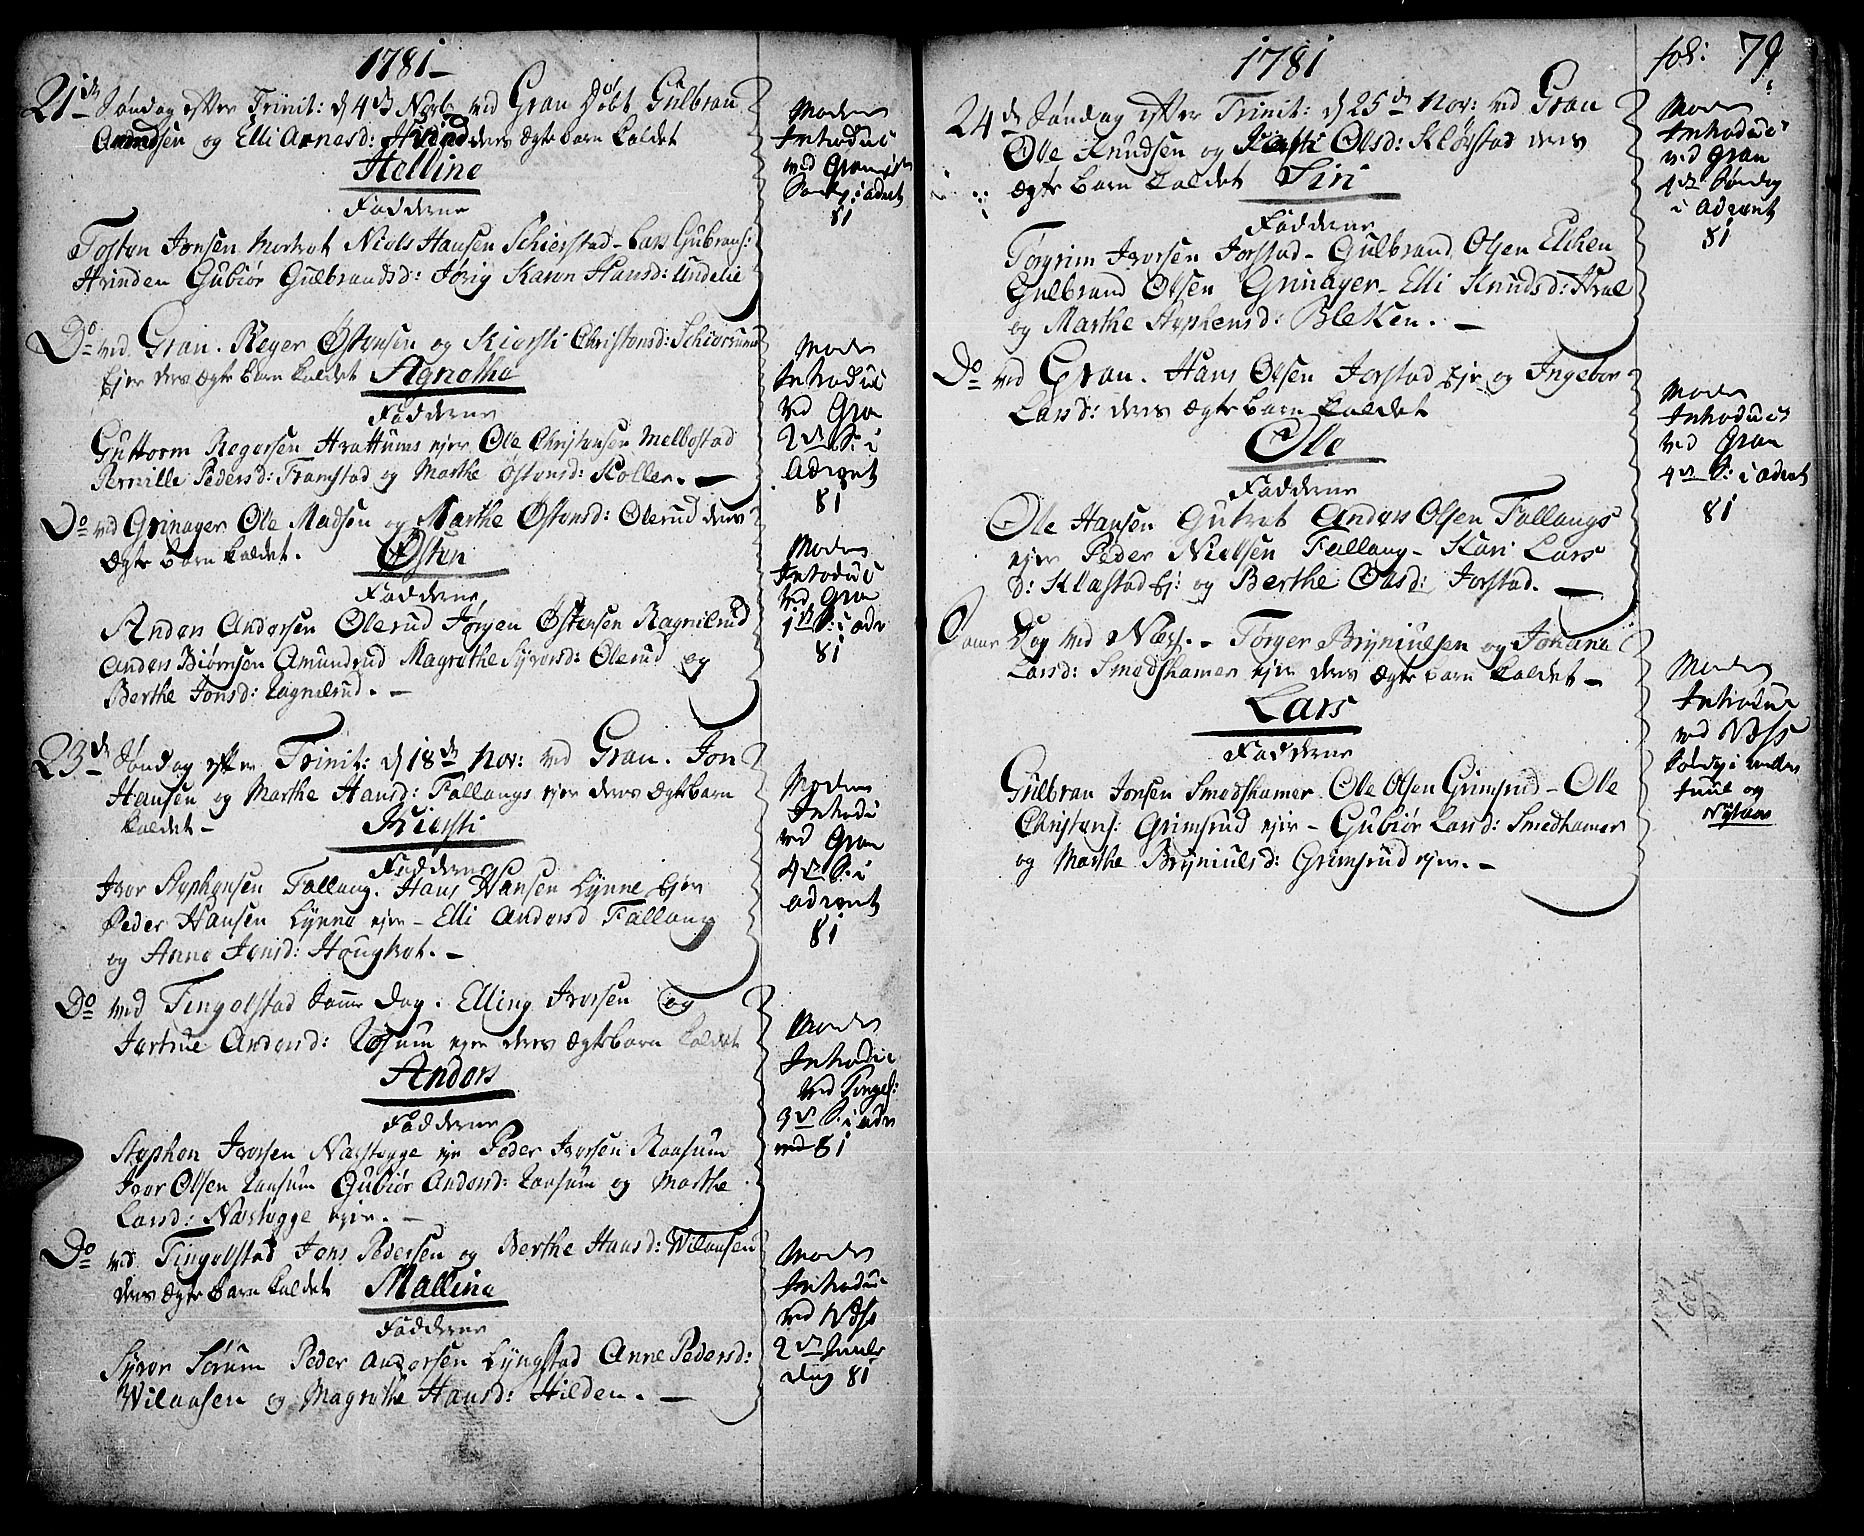 1781
21de Søndag efter Trinit: d 4de Novb. ved Gran Døbt Gulbran
Amundsen og Elli Arnesd: ders ægte barn kaldet
Helline
Fadderne
Tosten Jonsen Morket Niels Hansen Schierstad - Lars Gulbrans:
Hvinden Gubiør Gulbrandsd: Jørig Karen Hansd: Undelie
Moder
Introduc
ved Gran
Sønd: i advent
81
Do ved Gran. Reyer Østensen og Kiersti Christensd:
Ejer ders ægte barn kaldet Agnethe
Fadderne
Guttorm Regersen ejer Ole Christensen Melbostad
Pernille Pedersd: Framstad og Marthe Østensd: Koller. -
Moder
Introduc
ved Gra
2de S: i
Advent
81
Do ved Grinager Ole Madsen og Marthe Østensd: Olerud ders
ægte barn kaldet. Østen
Fadderne
Anders Andersen Olerud Jørgen Østensen Ragnilrud
Anders Biørnsen Amundrud Magrethe Syversd: Olerud og
Berthe Jonsd: Ragnilrud. -
Moder
Introduc
ved Gra
1ste S: i adv
81
23de Søndag efter Trinit: d 18de Nov: ved Gran. Jon
Hansen og Marthe Hansd: Fallangs ejer ders ægte barn
kaldet - Kiersti
Fadderne
Iver Stephensen Fallang. Hans Hansen Lynne Ejer
Peder Hansen Lynne ejer - Elli Andersd Fallang
og Anne Jensd: Hougket. -
Moder
Introdu
ved Gran
4de S: i
advent
81
Do ved Tingelstad samme Dag. Elling Iversen og
Jertrue Andersd: ejer ders ægte barn kaldet
Anders
Fadderne
Stephen Iversen Nærstegge ejer Peder Iversen Raasum
Iver Olsen Raasum Gubiør Andersd: Raasum og Marthe
Larsd: Nærstegge ejer. -
Moder
Introduc
ved Tingel:
3de S: i adv
ved 81
Do ved Tingelstad Jens Pedersen og Berthe Hansd: Wilaasen
ders ægte Barn kaldet Malline
Fadderne
Syver Sørum Peder Andersen Lyngstad Anne Pedersd:
Wilaasen og Magrethe Hansd: Hilden. -
Moder
Introduc
ved Næss
2den Juule
dag 81
1781
fol: 79
24de Søndag efter Trinit: d 25de Nov: ved Gran
Ole Knudsen og Kiersti Olsd: Kløvstad ders
ægte barn kaldet Siri
Fadderne
Torgrim Iversen Jorstad - Gulbrand Olsen Elken
Gulbrand Olsen Grinager - Elli Knudsd: Hval
og Marthe Stephensd: Bleken. -
Moder
Introduc
ved Gran
4de Søndag
i Advent
81
Do ved Gran. Hans Olsen Jorstad Eje og Ingebor
Larsd: ders ægte barn kaldet
Ole
Fadderne
Ole Hansen Anders Olsen Fallangs
ejer Peder Nielsen Fallang - Kari Lars
d: Klæstad Ej: og Berthe Olsd: Jorstad. -
Moder
Introduc
ved Gran
4de S: i advent
81
Samme Dag ved Næss. - Torger Bryniulsen og Johana
Larsd: Smedshamer ejer ders ægte barn kaldet -
Lars
Fadderne
Gulbran Jonsen Smedshamer Ole Olsen Grimsrud - Ole
Christens: Grimsrud ejer - Gubiør Larsd: Smedhamer
og Marthe Bryniulsd: Grimsrud ejer. -
Moder
Introduc
ved Næss
Søndag i mellem
Juul og
Nytaar